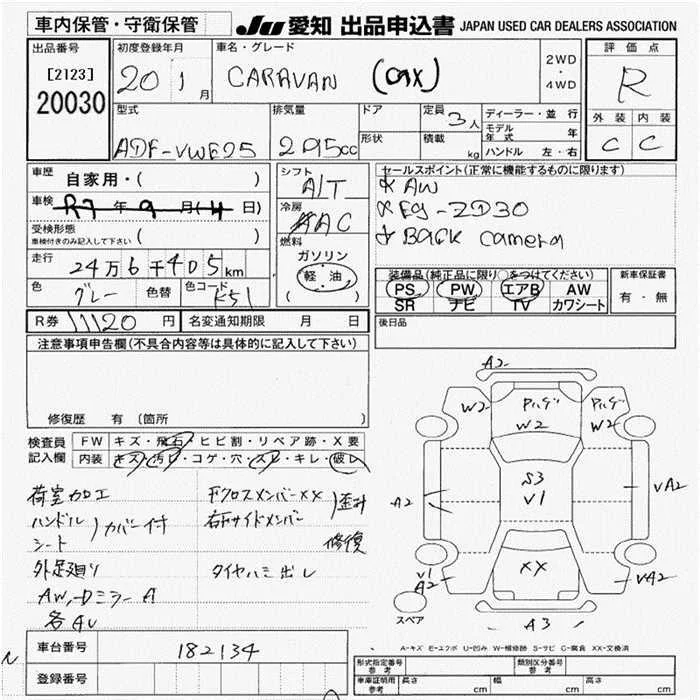 車内保管・守衛保管
JU 愛知 出品申込書 JAPAN USED CAR DEALERS ASSOCIATION
出品番号
[2123]
20030
初度登録年月
20 1 月
車名・グレード
CARAVAN (GX)
2WD
・
4WD
評価点
R
外装 内装
C C
型式
ADF-VWE25
排気量
2 95cc
ドア
形状
定員
3人
積載
kg
ディーラー・並行
モデル年式 年
ハンドル 左・右
車歴
自家用・( )
車検
R7 年 9 月( 日)
受検形態
車検付きのみ記入して下さい ( )
走行
24万6千405km
色
グレー 色替
色コード
K51
シフト
A/T
冷房
AAC
燃料
ガソリン
(軽・油)
セールスポイント(正常に機能するものに限ります)
AW
Eg-ZD30
BACK camera
装備品(純正品に限り○をつけてください)
PS PW エアB AW
SR ナビ TV カワシート
新車保証書
有・無
後日品
R券 11120 円
名変通知期限 月 日
注意事項申告欄(不具合内容等は具体的に記入して下さい)
修復歴 有 (箇所 )
検査員
記入欄
FW キズ・飛石・ヒビ割・リペア跡・X要
内装 キズ・汚レ・コゲ・穴・スレ・キレ・破レ
荷室加工
ハンドル
シート
カバー付
外足廻り
AW,Dミラー A
各AU
Fクロスメンバー××
右Fサイドメンバー
歪み
修復
タイヤハミ出し
A2
W2
W2
W2
S3
V1
A2
VA2
V1
A2
XX
VA2
A3
スペア
A-キズ E-エクボ U-凹み W-補修跡 S-サビ C-腐食 XX-交換済
車台番号
182134
登録番号
形式指定番号
参考
類別区分番号
参考
車庫証明用
参考
長さ cm
幅 cm
高さ cm